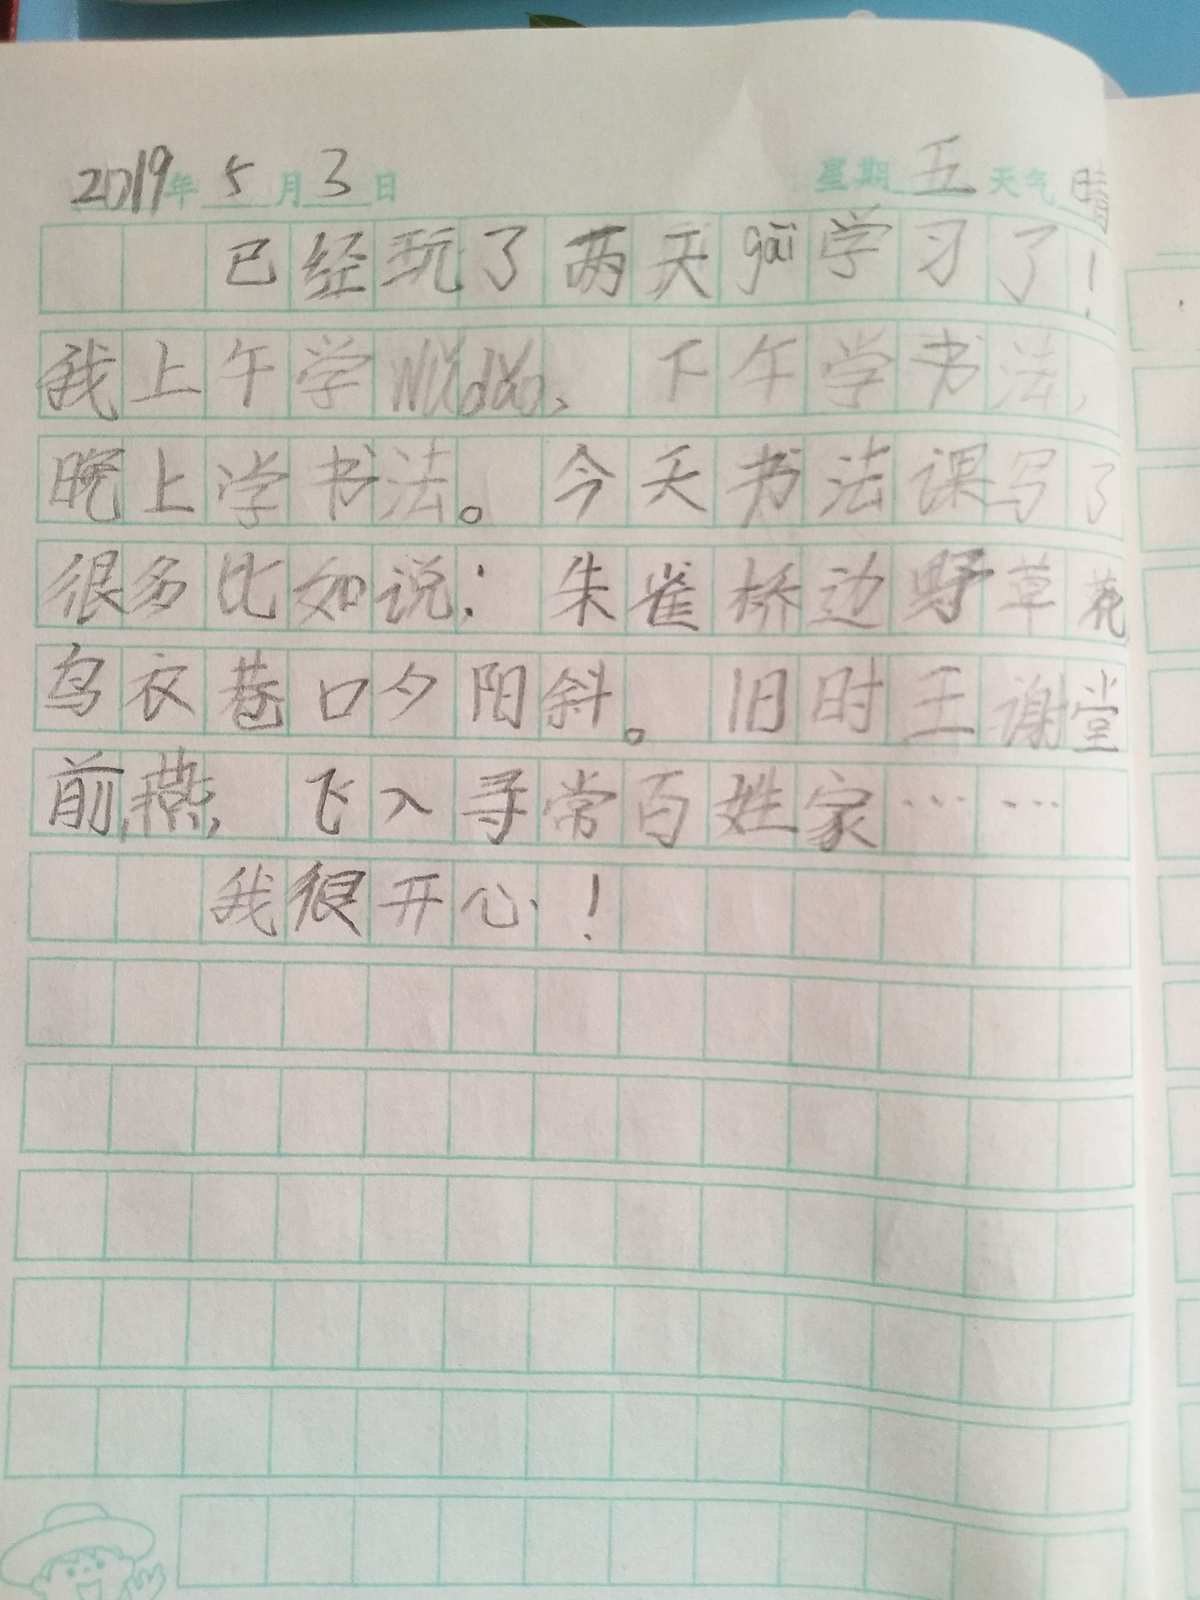 2019年5月3日 星期五天气晴
已经玩了两天gāi学习了！
我上午学Wǔdǎo，下午学书法，
晚上学书法。今天书法课写了
很多比如说：朱雀桥边野草花
鸟衣巷口夕阳斜。旧时王谢堂
前燕，飞入寻常百姓家……
我很开心！